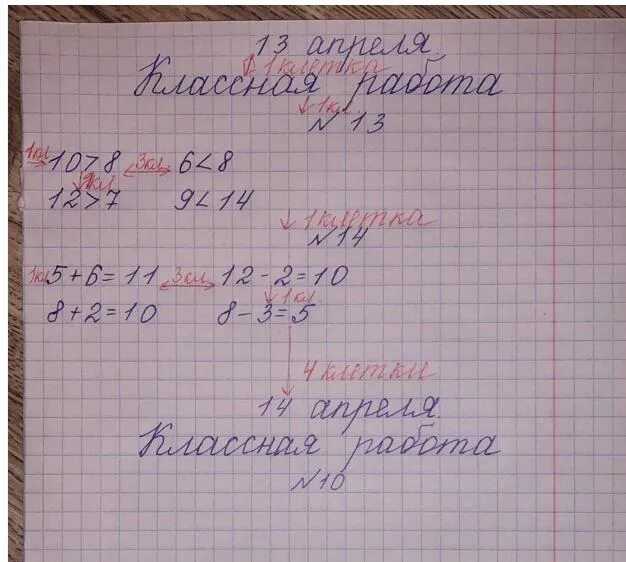 13 апреля.
1 клетка
Классная работа
1кл.
№13
1кл 10>8 3кл. 6<8
1кл
12>7 9<14
1 клетка
№14
1кл 5+6=11 3кл 12-2=10
1кл.
8+2=10 8-3=5
4 клетки
14 апреля.
Классная работа
№10